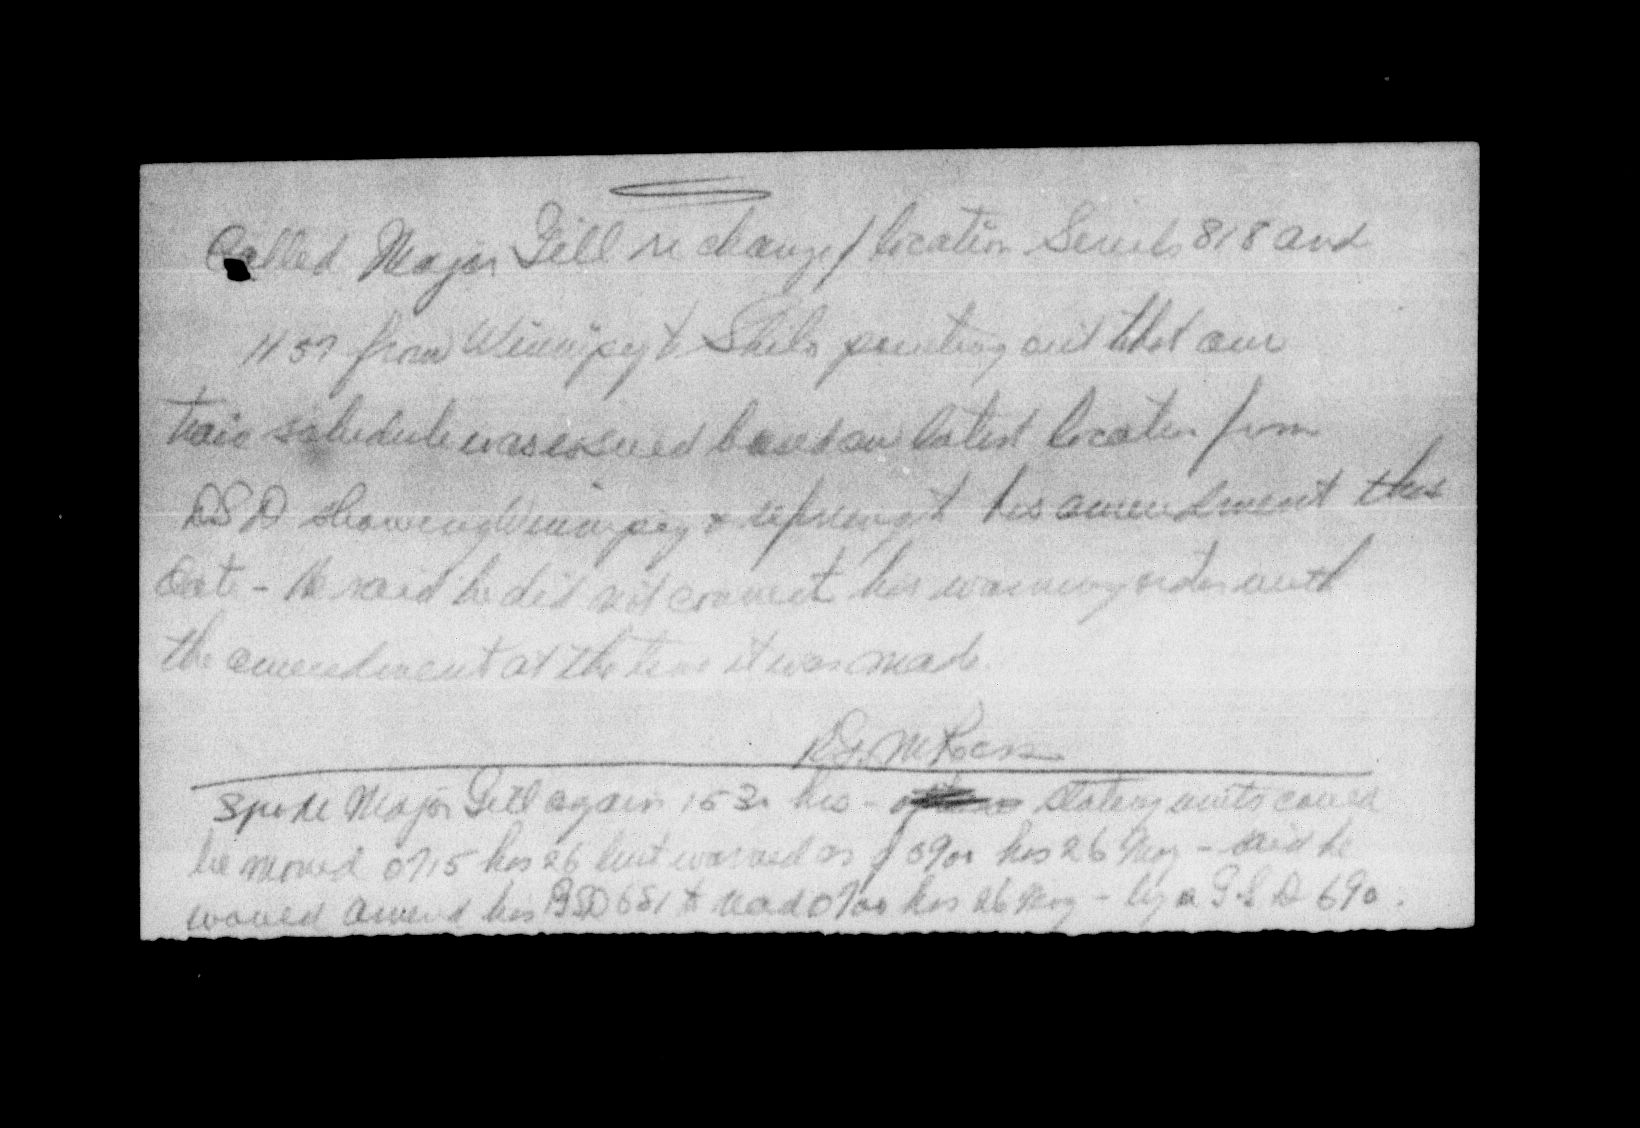 Called Major Gill re change / location Serials 818 and
1157 from Winnipeg to Shilo pointing out that our
train schedule was issued based on latest location from
DSD showing Winnipeg & his amendment this
date - He said he did not connect his warning order with
the amendment at the time it was made.
Spoke Major Gill again 153 hrs - stating units could
be moved 0715 hrs 26 but warned as of 0900 hrs 26 Nov - said he
would amend his GSD 681 to read 0700 hrs 26 Nov - by a G.S.D 690.